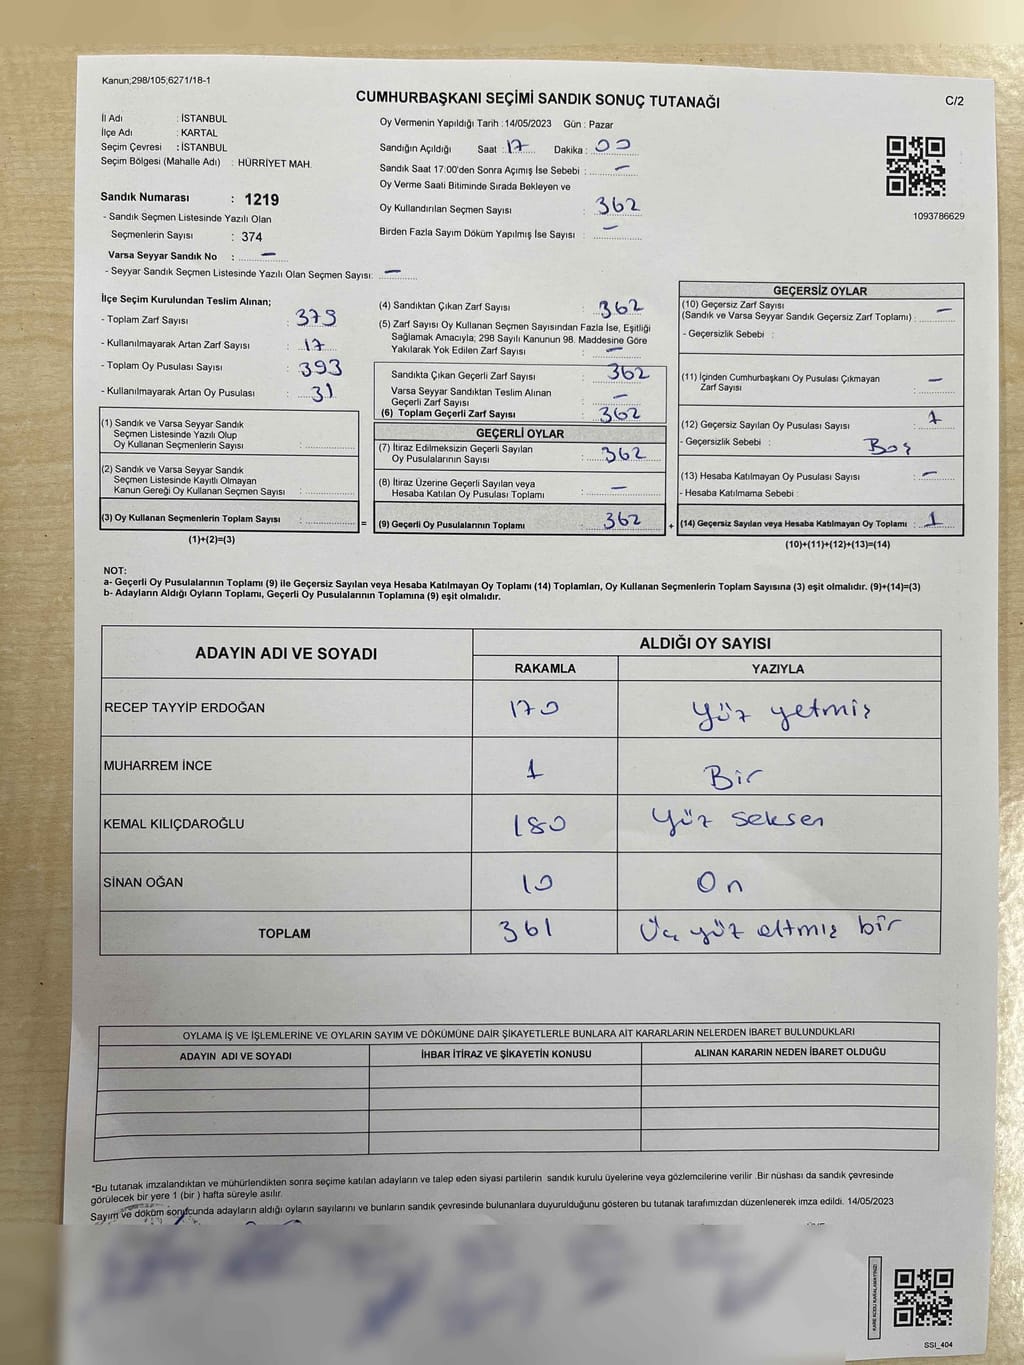 Kanun;298/105;6271/18-1
CUMHURBAŞKANI SEÇİMİ SANDIK SONUÇ TUTANAĞI
C/2
İl Adı : İSTANBUL
İlçe Adı : KARTAL
Seçim Çevresi : İSTANBUL
Seçim Bölgesi (Mahalle Adı) : HÜRRİYET MAH.
Sandık Numarası : 1219
- Sandık Seçmen Listesinde Yazılı Olan
Seçmenlerin Sayısı : 374
Varsa Seyyar Sandık No : —
- Seyyar Sandık Seçmen Listesinde Yazılı Olan Seçmen Sayısı: —
Oy Vermenin Yapıldığı Tarih : 14/05/2023 Gün : Pazar
Sandığın Açıldığı Saat : 17 Dakika : 00
Sandık Saat 17:00'den Sonra Açımış İse Sebebi : —
Oy Verme Saati Bitiminde Sırada Bekleyen ve
Oy Kullandırılan Seçmen Sayısı : 362
Birden Fazla Sayım Döküm Yapılmış İse Sayısı : —
1093786629
İlçe Seçim Kurulundan Teslim Alınan;
- Toplam Zarf Sayısı : 379
- Kullanılmayarak Artan Zarf Sayısı : 17
- Toplam Oy Pusulası Sayısı : 393
- Kullanılmayarak Artan Oy Pusulası : 31
(1) Sandık ve Varsa Seyyar Sandık
Seçmen Listesinde Yazılı Olup
Oy Kullanan Seçmenlerin Sayısı :
(2) Sandık ve Varsa Seyyar Sandık
Seçmen Listesinde Kayıtlı Olmayan
Kanun Gereği Oy Kullanan Seçmen Sayısı :
(3) Oy Kullanan Seçmenlerin Toplam Sayısı : =
(1)+(2)=(3)
(4) Sandıktan Çıkan Zarf Sayısı : 362
(5) Zarf Sayısı Oy Kullanan Seçmen Sayısından Fazla İse, Eşitliği
Sağlamak Amacıyla; 298 Sayılı Kanunun 98. Maddesine Göre
Yakılarak Yok Edilen Zarf Sayısı : —
Sandıkta Çıkan Geçerli Zarf Sayısı : 362
Varsa Seyyar Sandıktan Teslim Alınan
Geçerli Zarf Sayısı : —
(6) Toplam Geçerli Zarf Sayısı : 362
GEÇERLİ OYLAR
(7) İtiraz Edilmeksizin Geçerli Sayılan
Oy Pusulalarının Sayısı : 362
(8) İtiraz Üzerine Geçerli Sayılan veya
Hesaba Katılan Oy Pusulası Toplamı : —
(9) Geçerli Oy Pusulalarının Toplamı : 362 +
GEÇERSİZ OYLAR
(10) Geçersiz Zarf Sayısı
(Sandık ve Varsa Seyyar Sandık Geçersiz Zarf Toplamı) : —
- Geçersizlik Sebebi :
(11) İçinden Cumhurbaşkanı Oy Pusulası Çıkmayan
Zarf Sayısı : —
(12) Geçersiz Sayılan Oy Pusulası Sayısı : 1
- Geçersizlik Sebebi : Boş
(13) Hesaba Katılmayan Oy Pusulası Sayısı : —
- Hesaba Katılmama Sebebi :
(14) Geçersiz Sayılan veya Hesaba Katılmayan Oy Toplamı : 1
(10)+(11)+(12)+(13)=(14)
NOT:
a- Geçerli Oy Pusulalarının Toplamı (9) ile Geçersiz Sayılan veya Hesaba Katılmayan Oy Toplamı (14) Toplamları, Oy Kullanan Seçmenlerin Toplam Sayısına (3) eşit olmalıdır. (9)+(14)=(3)
b- Adayların Aldığı Oyların Toplamı, Geçerli Oy Pusulalarının Toplamına (9) eşit olmalıdır.
ADAYIN ADI VE SOYADI
ALDIĞI OY SAYISI
RAKAMLA YAZIYLA
RECEP TAYYİP ERDOĞAN 170 Yüz yetmiş
MUHARREM İNCE 1 Bir
KEMAL KILIÇDAROĞLU 180 Yüz seksen
SİNAN OĞAN 10 On
TOPLAM 361 Üç yüz altmış bir
OYLAMA İŞ VE İŞLEMLERİNE VE OYLARIN SAYIM VE DÖKÜMÜNE DAİR ŞİKAYETLERLE BUNLARA AİT KARARLARIN NELERDEN İBARET BULUNDUKLARI
ADAYIN ADI VE SOYADI İHBAR İTİRAZ VE ŞİKAYETİN KONUSU ALINAN KARARIN NEDEN İBARET OLDUĞU
*Bu tutanak imzalandıktan ve mühürlendikten sonra seçime katılan adayların ve talep eden siyasi partilerin sandık kurulu üyelerine veya gözlemcilerine verilir .Bir nüshası da sandık çevresinde
görülecek bir yere 1 (bir ) hafta süreyle asılır.
Sayım ve döküm sonucunda adayların aldığı oyların sayılarını ve bunların sandık çevresinde bulunanlara duyurulduğunu gösteren bu tutanak tarafımızdan düzenlenerek imza edildi. 14/05/2023
KARE KODU KARALAMAYINIZ!
SSI_404